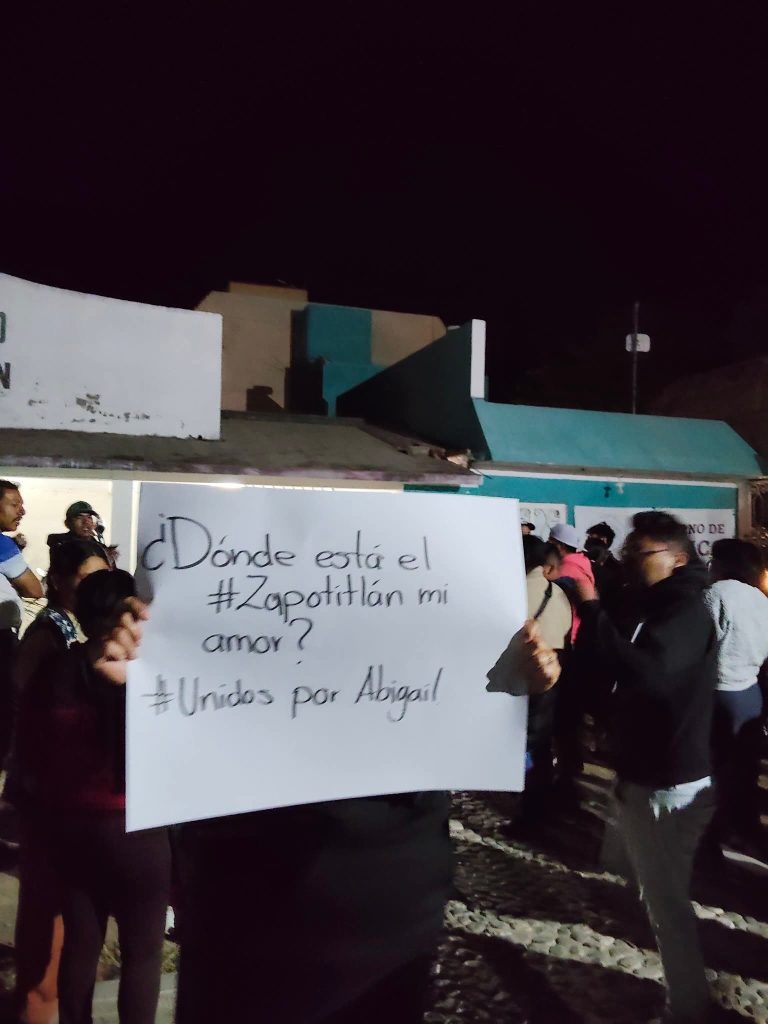 ¿Dónde está el
#Zapotitlán mi
amor?
#Unidos por Abigail
NO DE